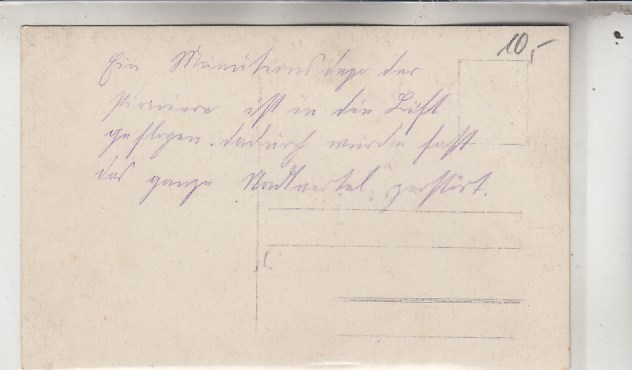 10,-
Ein Munitionsdepo der
Pioniere ist in die Luft
geflogen. dadurch wurde fast
das ganze Stadtviertel zerstört.